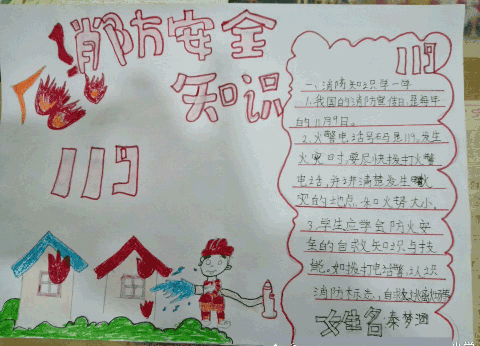 消防安全
知识
119
119
一、消防知识学一学
1.我国的消防宣传日是每年
的11月9日。
2.火警电话号码是119。发生
火灾时,要尽快拨打火警
电话,并讲清楚发生火
灾的地点和火势大小。
3.学生应学会防火安
全的自救知识与技
能。如拨打电话警,认识
消防标志,自救
姓名:秦梦涵